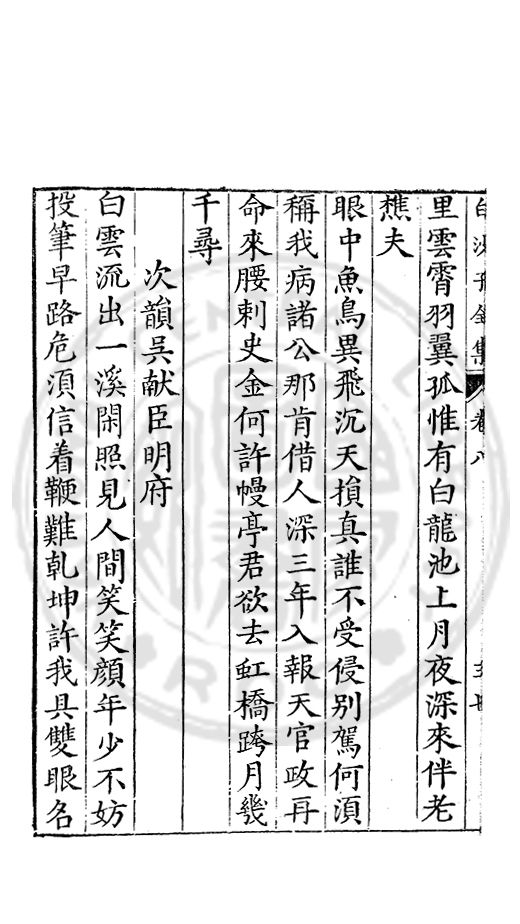 集卷八
里雲霄羽翼孤惟有白龍池上月夜深來伴老
樵夫
眼中魚鳥異飛沉天損真誰不受侵别駕何湏
稱我病諸公那肯借人深三年入報天官政再
命來腰刺史金何許幔亭君欲去虹橋跨月幾
千尋
次韻吴献臣明府
白雲流出一溪閑照見人間笑笑顔年少不妨
投筆早路危湏信着鞭難乾坤許我具雙眼名